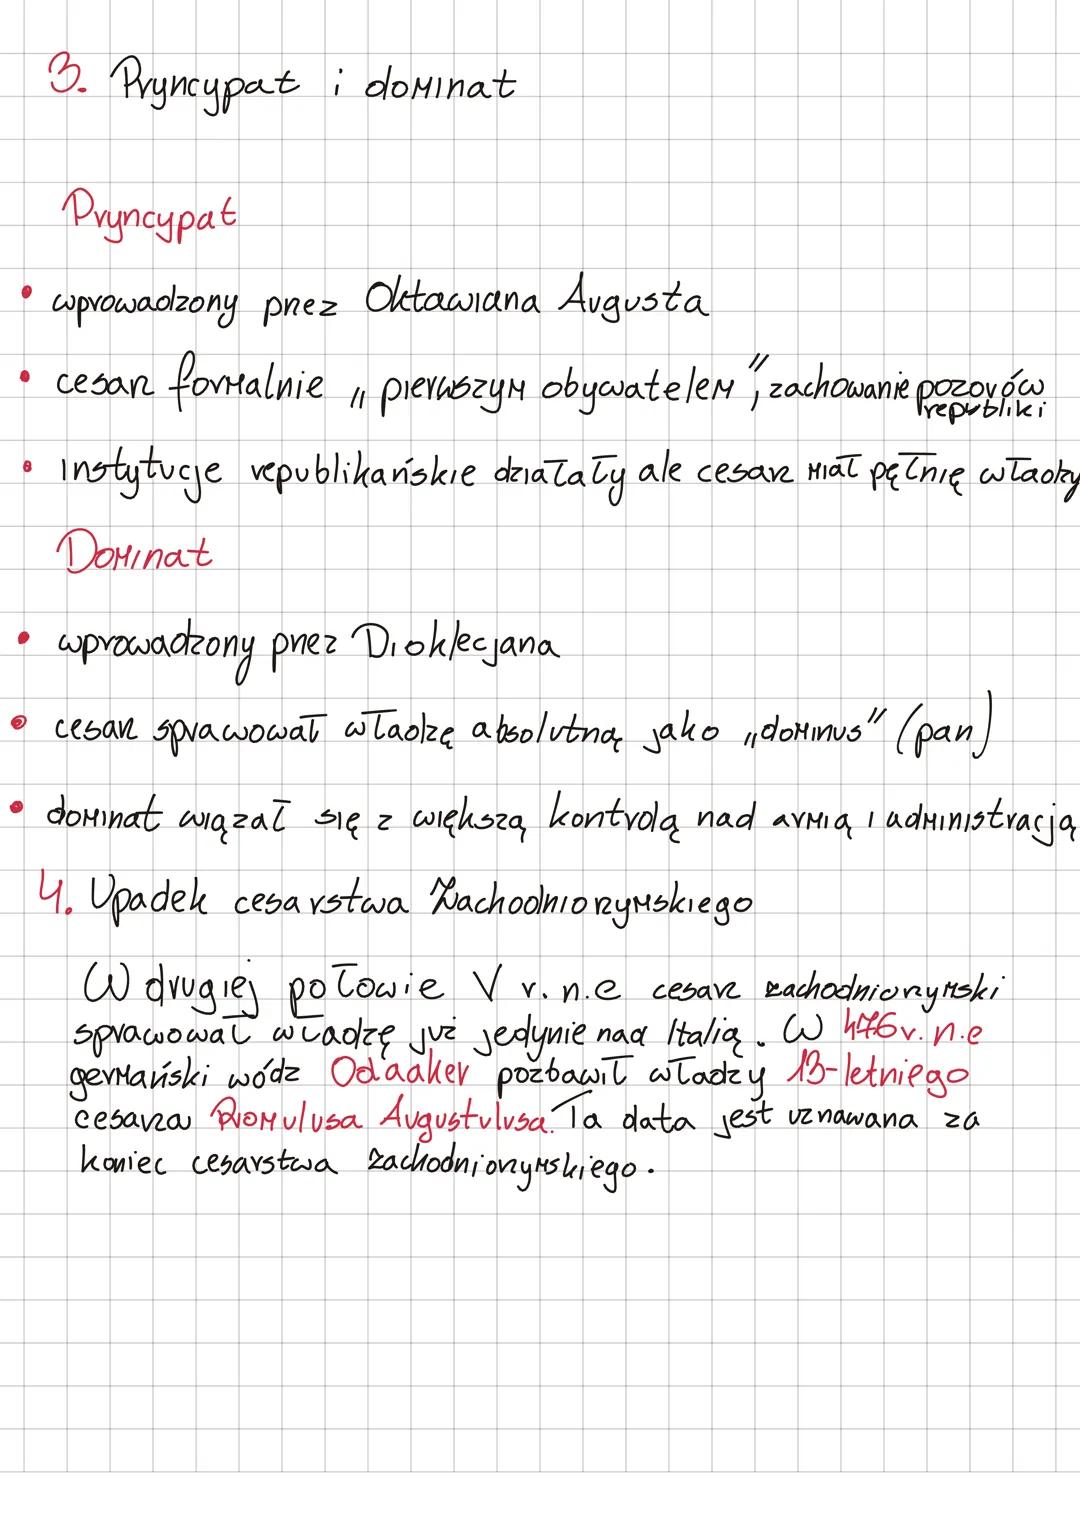 3. Pryncypat i dominat
Pryncypat
• wprowadzony przez Oktawiana Augusta
• cesarz formalnie „pierwszym obywatelem", zachowanie pozorów
republiki
• instytucje republikańskie działały ale cesarz miał pęłnię władzy
Dominat
• wprowadzony przez Dioklecjana
• cesarz sprawował władzę absolutną jako „dominus" (pan)
• dominat wiązał się z większą kontrolą nad armią i administracją
4. Upadek cesarstwa Zachodniorzymskiego
W drugiej połowie V r.n.e cesarz zachodniorzymski
sprawował władzę już jedynie nad Italią. W 476r.n.e
germański wódz Odaaker pozbawił władzy 13-letniego
cesarza Romulusa Augustulusa. Ta data jest uznawana za
koniec cesarstwa zachodniorzymskiego.